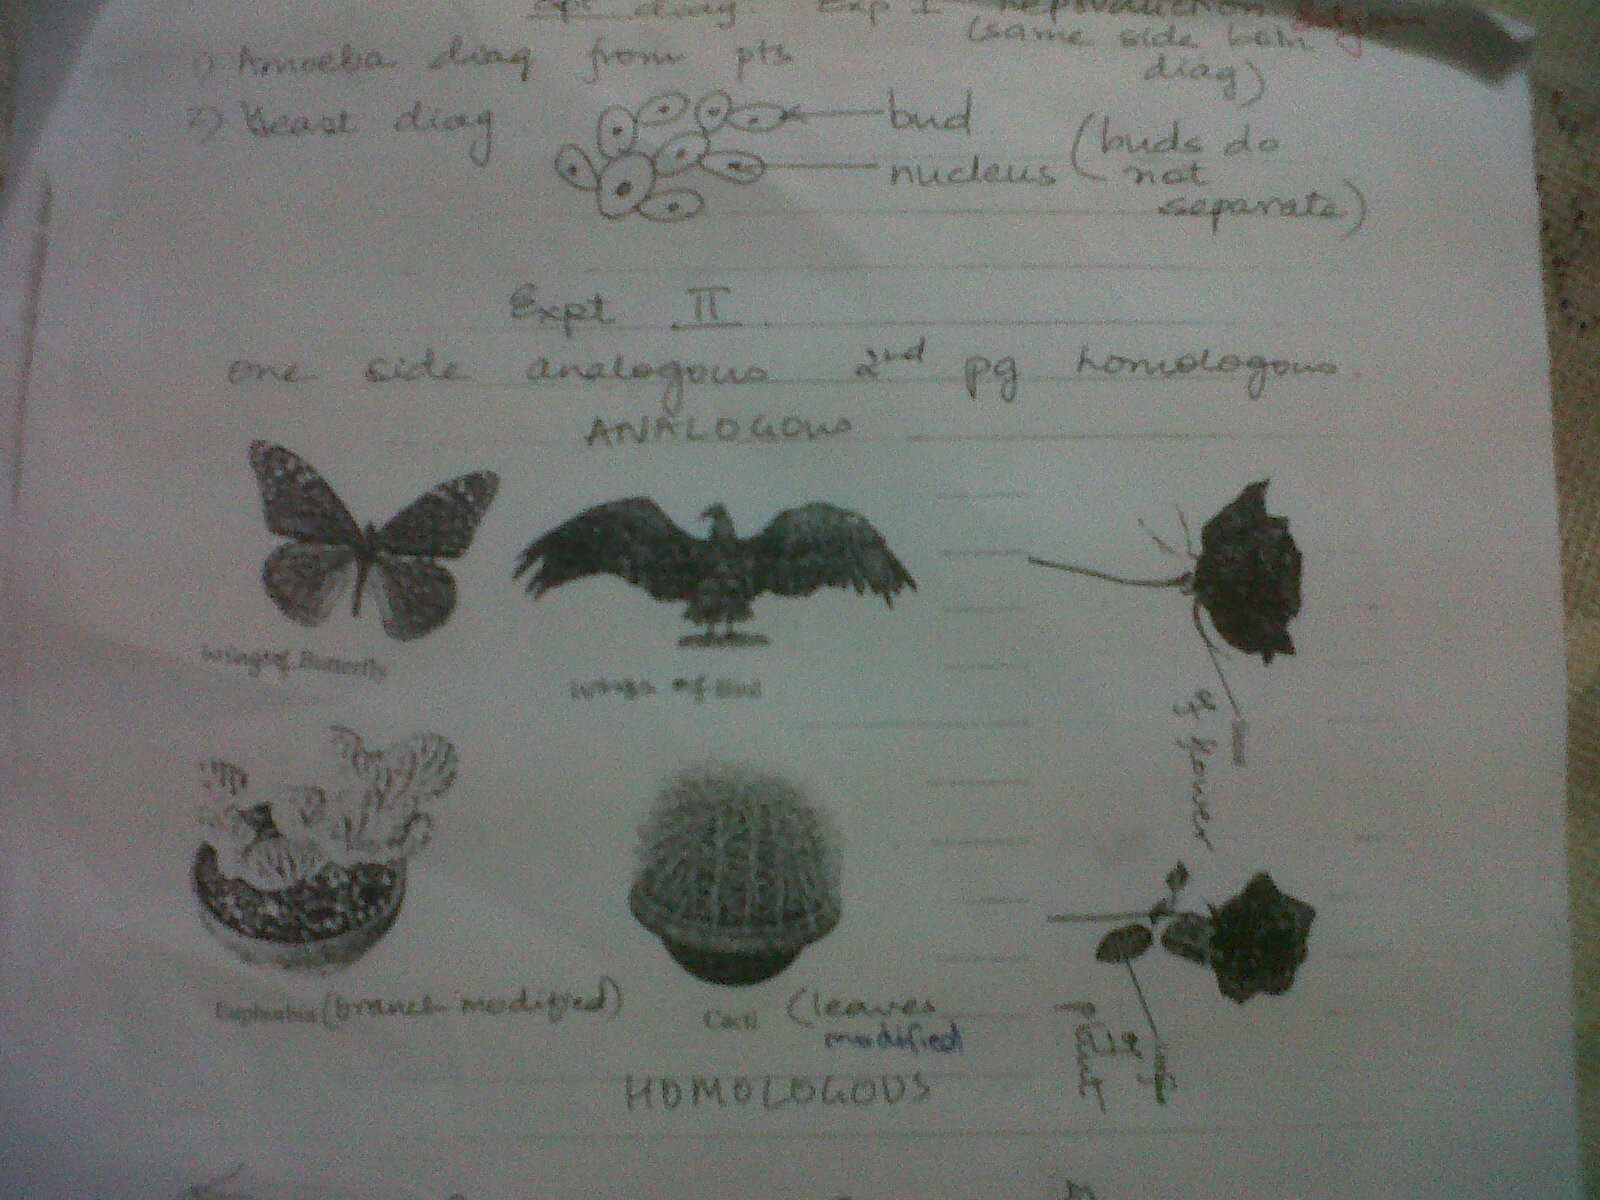 diag Exp I Reproduction
(same side both
1) Amoeba diag from pts
diag)
2) Yeast diag
bud
nucleus
(buds do
not
separate)
Expt II
one side analogous 2nd pg homologous
ANALOGOUS
Wings of Butterfly
Wings of Bird
of flower
Euphorbia (branch modified)
Cacti (leaves
modified
HOMOLOGOUS